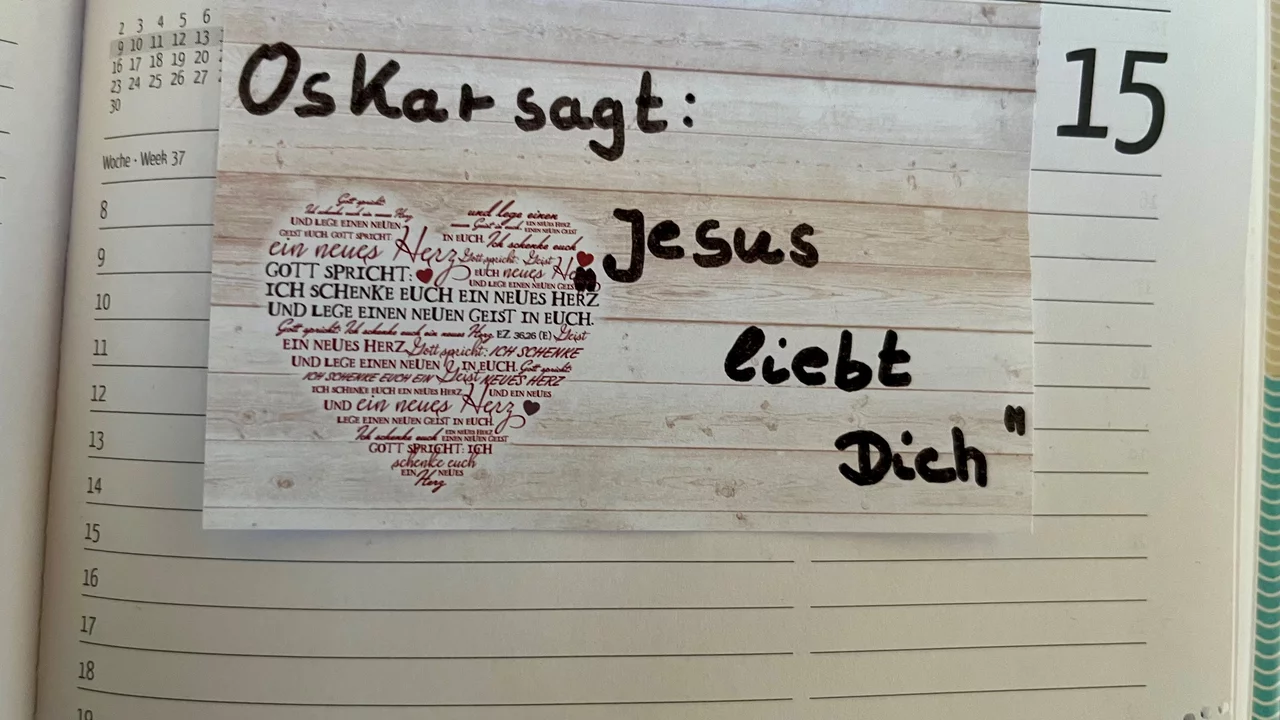 2 3 4 5 6
9 10 11 12 13
16 17 18 19 20
23 24 25 26 27
30
15
Woche · Week 37
8
9
10
11
12
13
14
15
16
17
18
19
Oskar sagt:
„Jesus
liebt
Dich"
Gott spricht
Ich schenke euch ein neues Herz
UND LEGE EINEN NEUEN
GEIST IN EUCH. GOTT SPRICHT.
ein neues Herz
GOTT SPRICHT:
und lege einen
Geist in euch. EIN NEUES HERZ
IN EUCH. Ich schenke euch
Gott spricht: Geist
EUCH neues
UND LEGE EINEN NEUEN
ICH SCHENKE EUCH EIN NEUES HERZ
UND LEGE EINEN NEUEN GEIST IN EUCH.
Gott spricht: Ich schenke euch ein neues Herz EZ 36,26 (E) Geist
EIN NEUES HERZ Gott spricht: ICH SCHENKE
UND LEGE EINEN NEUEN IN EUCH. Gott spricht
ICH SCHENKE EUCH EIN Geist NEUES HERZ
ICH SCHENKE EUCH EIN NEUES HERZ UND EIN NEUES
UND ein neues Herz
LEGE EINEN NEUEN GEIST IN EUCH.
Ich schenke euch EIN NEUES HERZ
EINEN NEUEN GEIST
GOTT SPRICHT: ICH
schenke euch
EIN NEUES
Herz